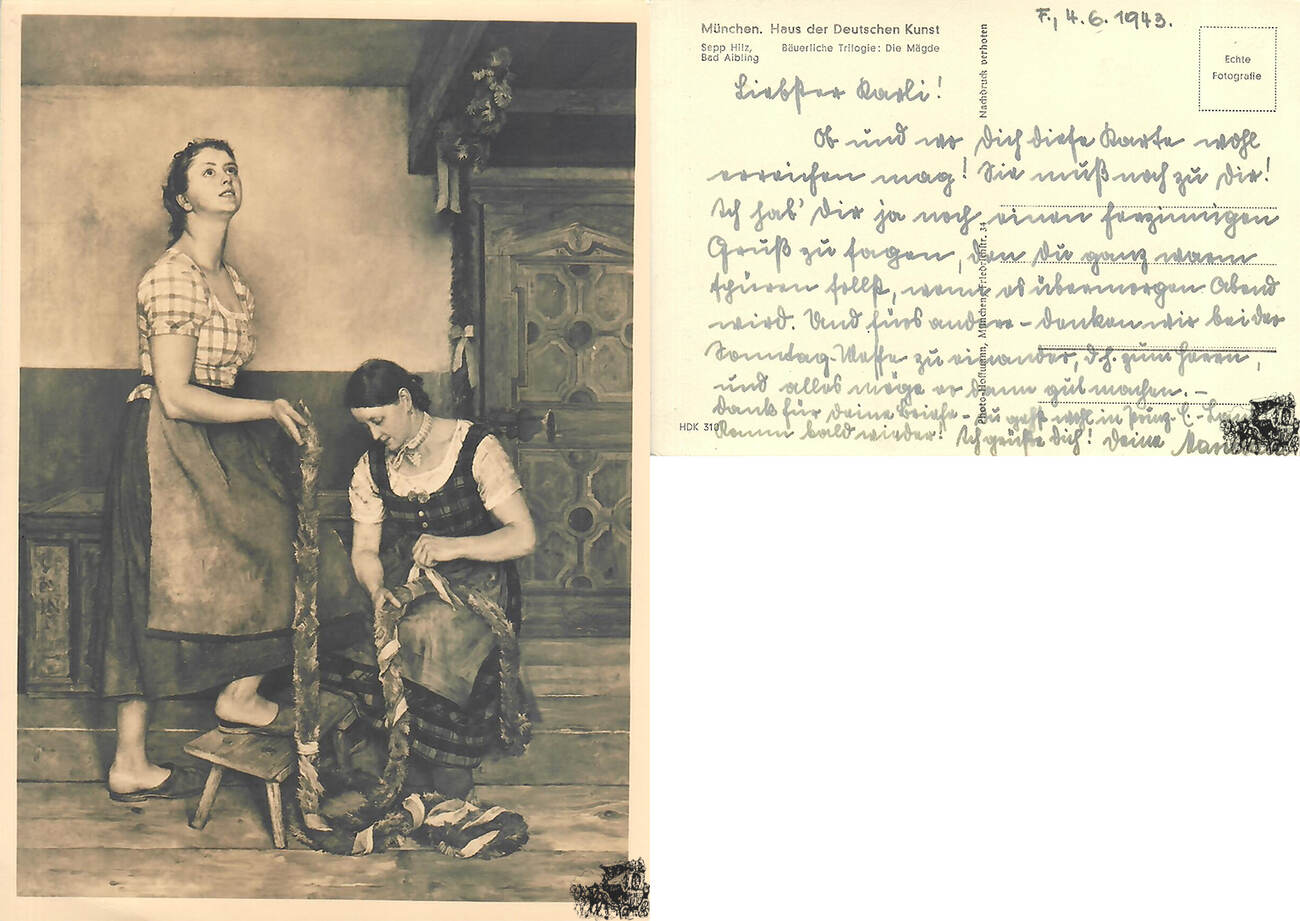 München. Haus der Deutschen Kunst
Sepp Hilz, Bäuerliche Trilogie: Die Mägde
Bad Aibling
F., 4.6.1943.
Echte
Fotografie
Nachdruck verboten
Liebster Karli!
Ob und wo Dich diese Karte wohl
erreichen mag! Sie muß noch zu Dir!
Ich hab' Dir ja noch einen herzinnigen
Gruß zu sagen, den Du ganz warm
spüren sollst, wenn es übermorgen Abend
wird. Und fürs andere – denken wir bei der
Sonntag-Messe zu einander, d.h. zum Herrn,
und alles möge er dann gut machen. –
Dank für Deine Briefe – Du gehst wohl in
Komm bald wieder! Ich grüße Dich! Deine
Photo-Hoffmann, München, Friedrichstr. 34
HDK 310